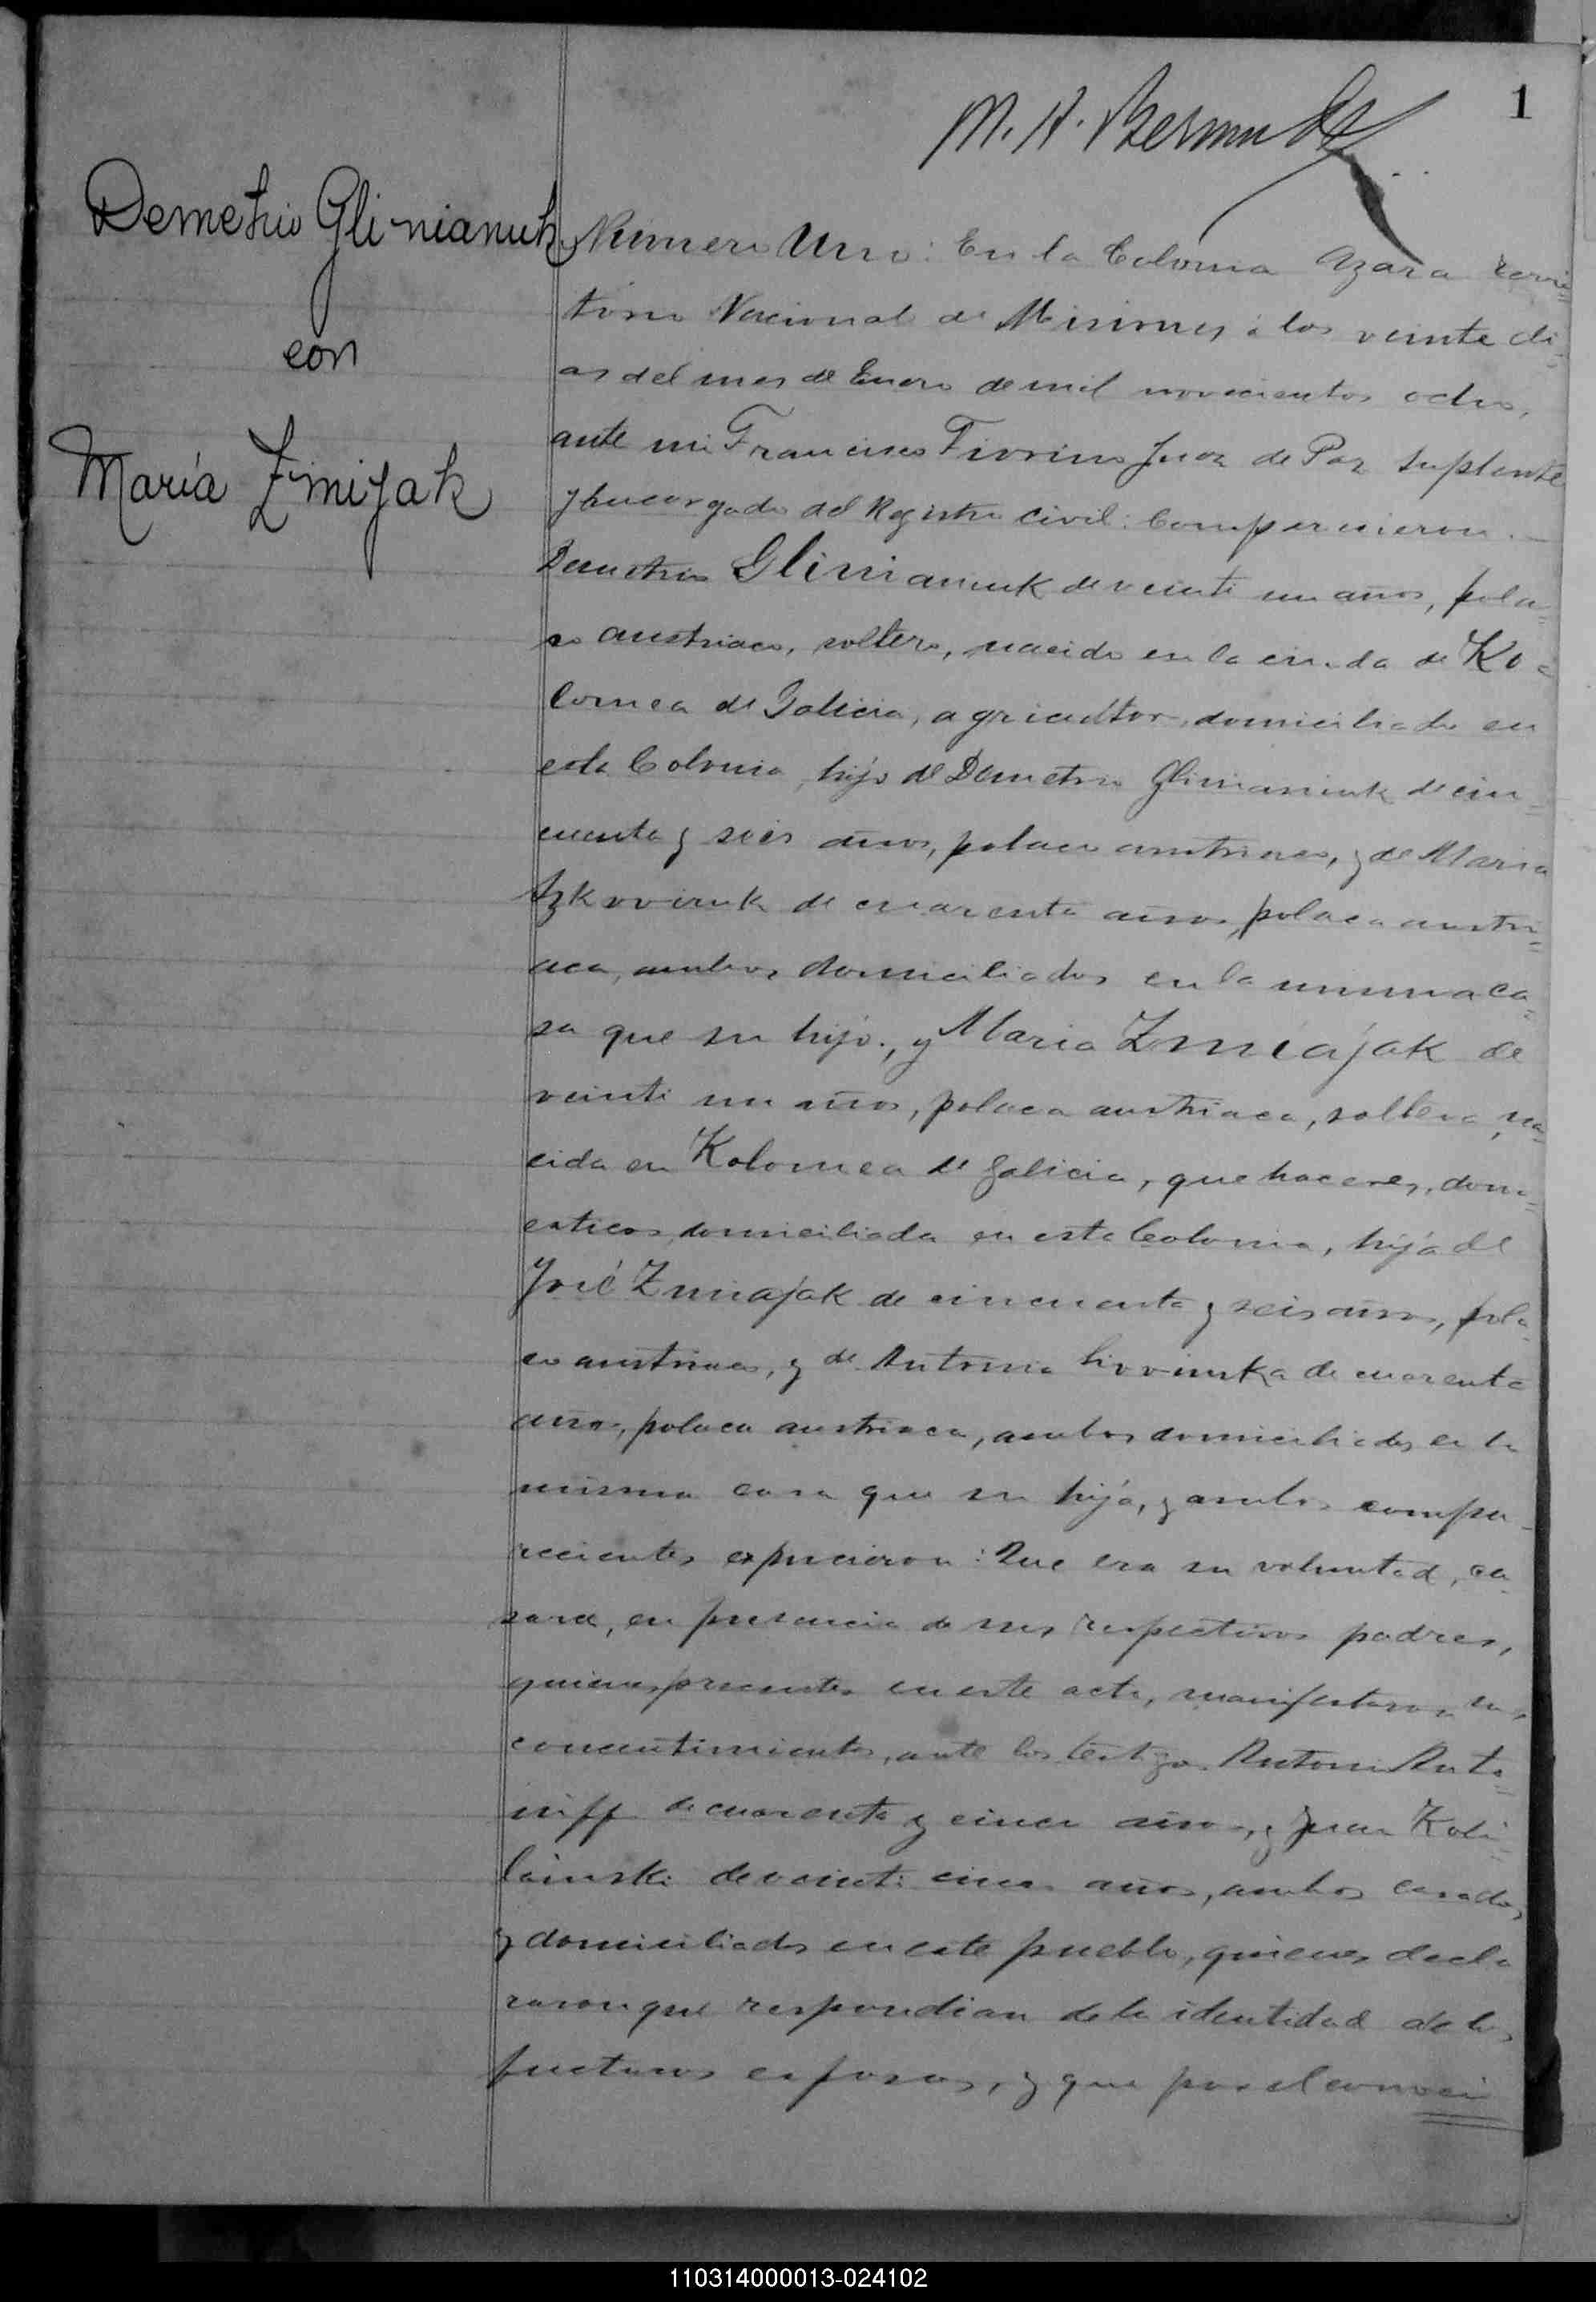 1
M. A. Bermudez
Demetrio Glinianuk
con
María Zmijak
Número Uno: En la Colonia Azara Terri=
torio Nacional de Misiones á los veinte di=
as del mes de Enero de mil novecientos ocho,
ante mi Francisco Fiorino Juez de Paz Suplente
y Encargado del Registro Civil: Comparecieron
Demetrio Glinianiuk de veinte un años, pola=
co austriaco, soltero, nacido en la ciuda de Ko=
lomea de Galicia, agricultor, domiciliado en
esta Colonia, hijo de Demetrio Glinianiuk de cin=
cuenta y seis años, polaco austriaco, y de Maria
de cuarenta años, polaca austri=
aca, ambos domiciliados en la misma ca=
sa que su hijo, y Maria Zmiájak de
veinti un años, polaca austriaca, soltera, na=
cida en Kolomea de Galicia, que haceres, dom=
esticos, domiciliada en esta Colonia, hija de
José Zmiajak de cincuenta y seis años, pola=
co austriaco, y de Antonia de cuarenta
años, polaca austriaca, ambos domiciliados en la
misma casa que su hija, y ambos compa-
recientes expucieron: Que era su voluntad, ca-
sarse, en presencia de sus respectivos padres,
quienes presentes en este acto, manifestaron su
concentimiento, ante los testigos Antonio Anto=
niff de cuarenta y cinco años, y Juan Koli=
lainski de veinti cinco años, ambos casados,
y domiciliados en este pueblo, quienes decla
raron que respondian de la identidad de los
fucturos esposos, y que por el conoci
110314000013-024102